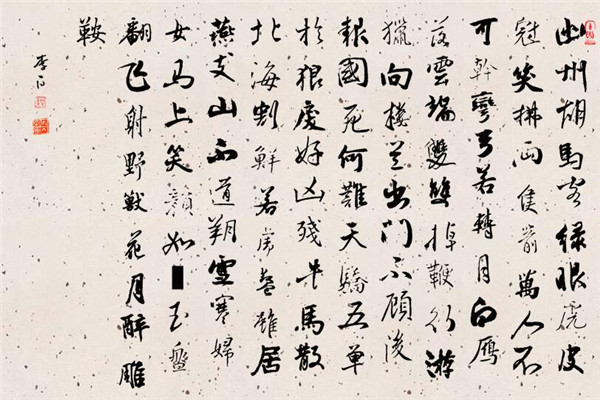 幽州胡馬客綠眼虎皮
冠笑拂兩隻箭萬人不
可幹彎弓若轉月白雁
落雲端雙雙掉鞭行游
獵向樓兰出門不顧後
報國死何難天驕五單
於狼戾好凶殘牛馬散
北海割鮮若虎餐雖居
燕支山不道朔雪寒婦
女馬上笑顏如玉盤
翻飞射野獸花月醉雕
鞍
李白